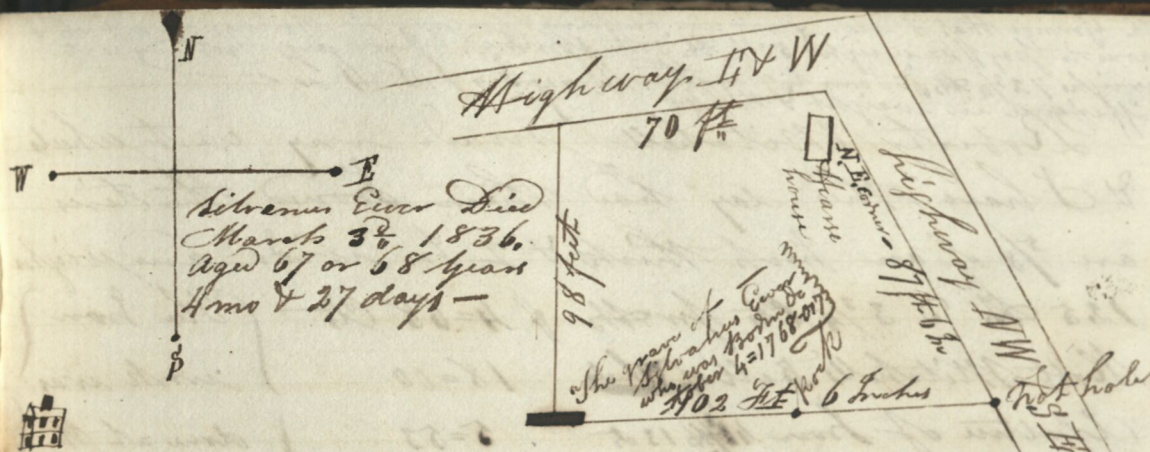 N
W
E
S
Silvanus Ewer Died
March 3d 1836.
Aged 67 or 68 Years
4 mo & 27 days —
Highway E & W
70 ft
98 feet
Hearse
house
N. E. Corner 87 ft. 6 In
highway NW
& S E
The grave of
Silvanus Ewer
who was Born
4 = 1768
Rock
102 Ft 6 Inches
Post hole